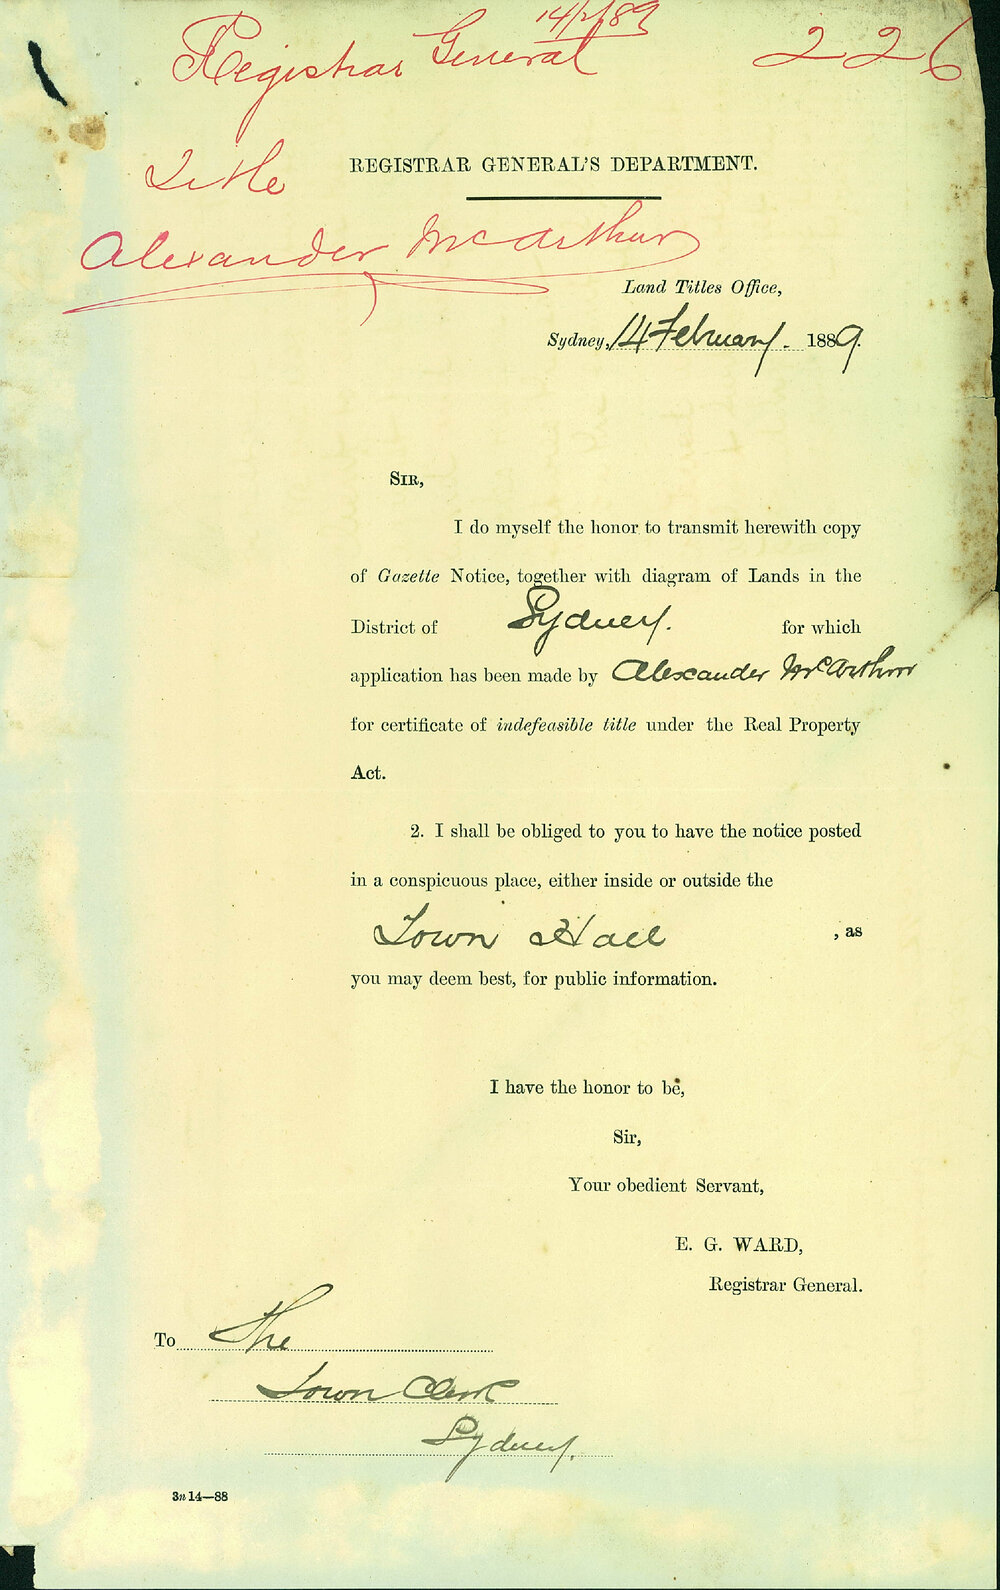 14/2/89
Registrar General 226
Title
Alexander McArthur
REGISTRAR GENERAL'S DEPARTMENT.
Land Titles Office,
Sydney, 14 February. 1889.
SIR,
I do myself the honor to transmit herewith copy
of Gazette Notice, together with diagram of Lands in the
District of Sydney. for which
application has been made by Alexander McArthur
for certificate of indefeasible title under the Real Property
Act.
2. I shall be obliged to you to have the notice posted
in a conspicuous place, either inside or outside the
Town Hall , as
you may deem best, for public information.
I have the honor to be,
Sir,
Your obedient Servant,
E. G. WARD,
Registrar General.
To The
Town Clerk
Sydney.
3n 14—88